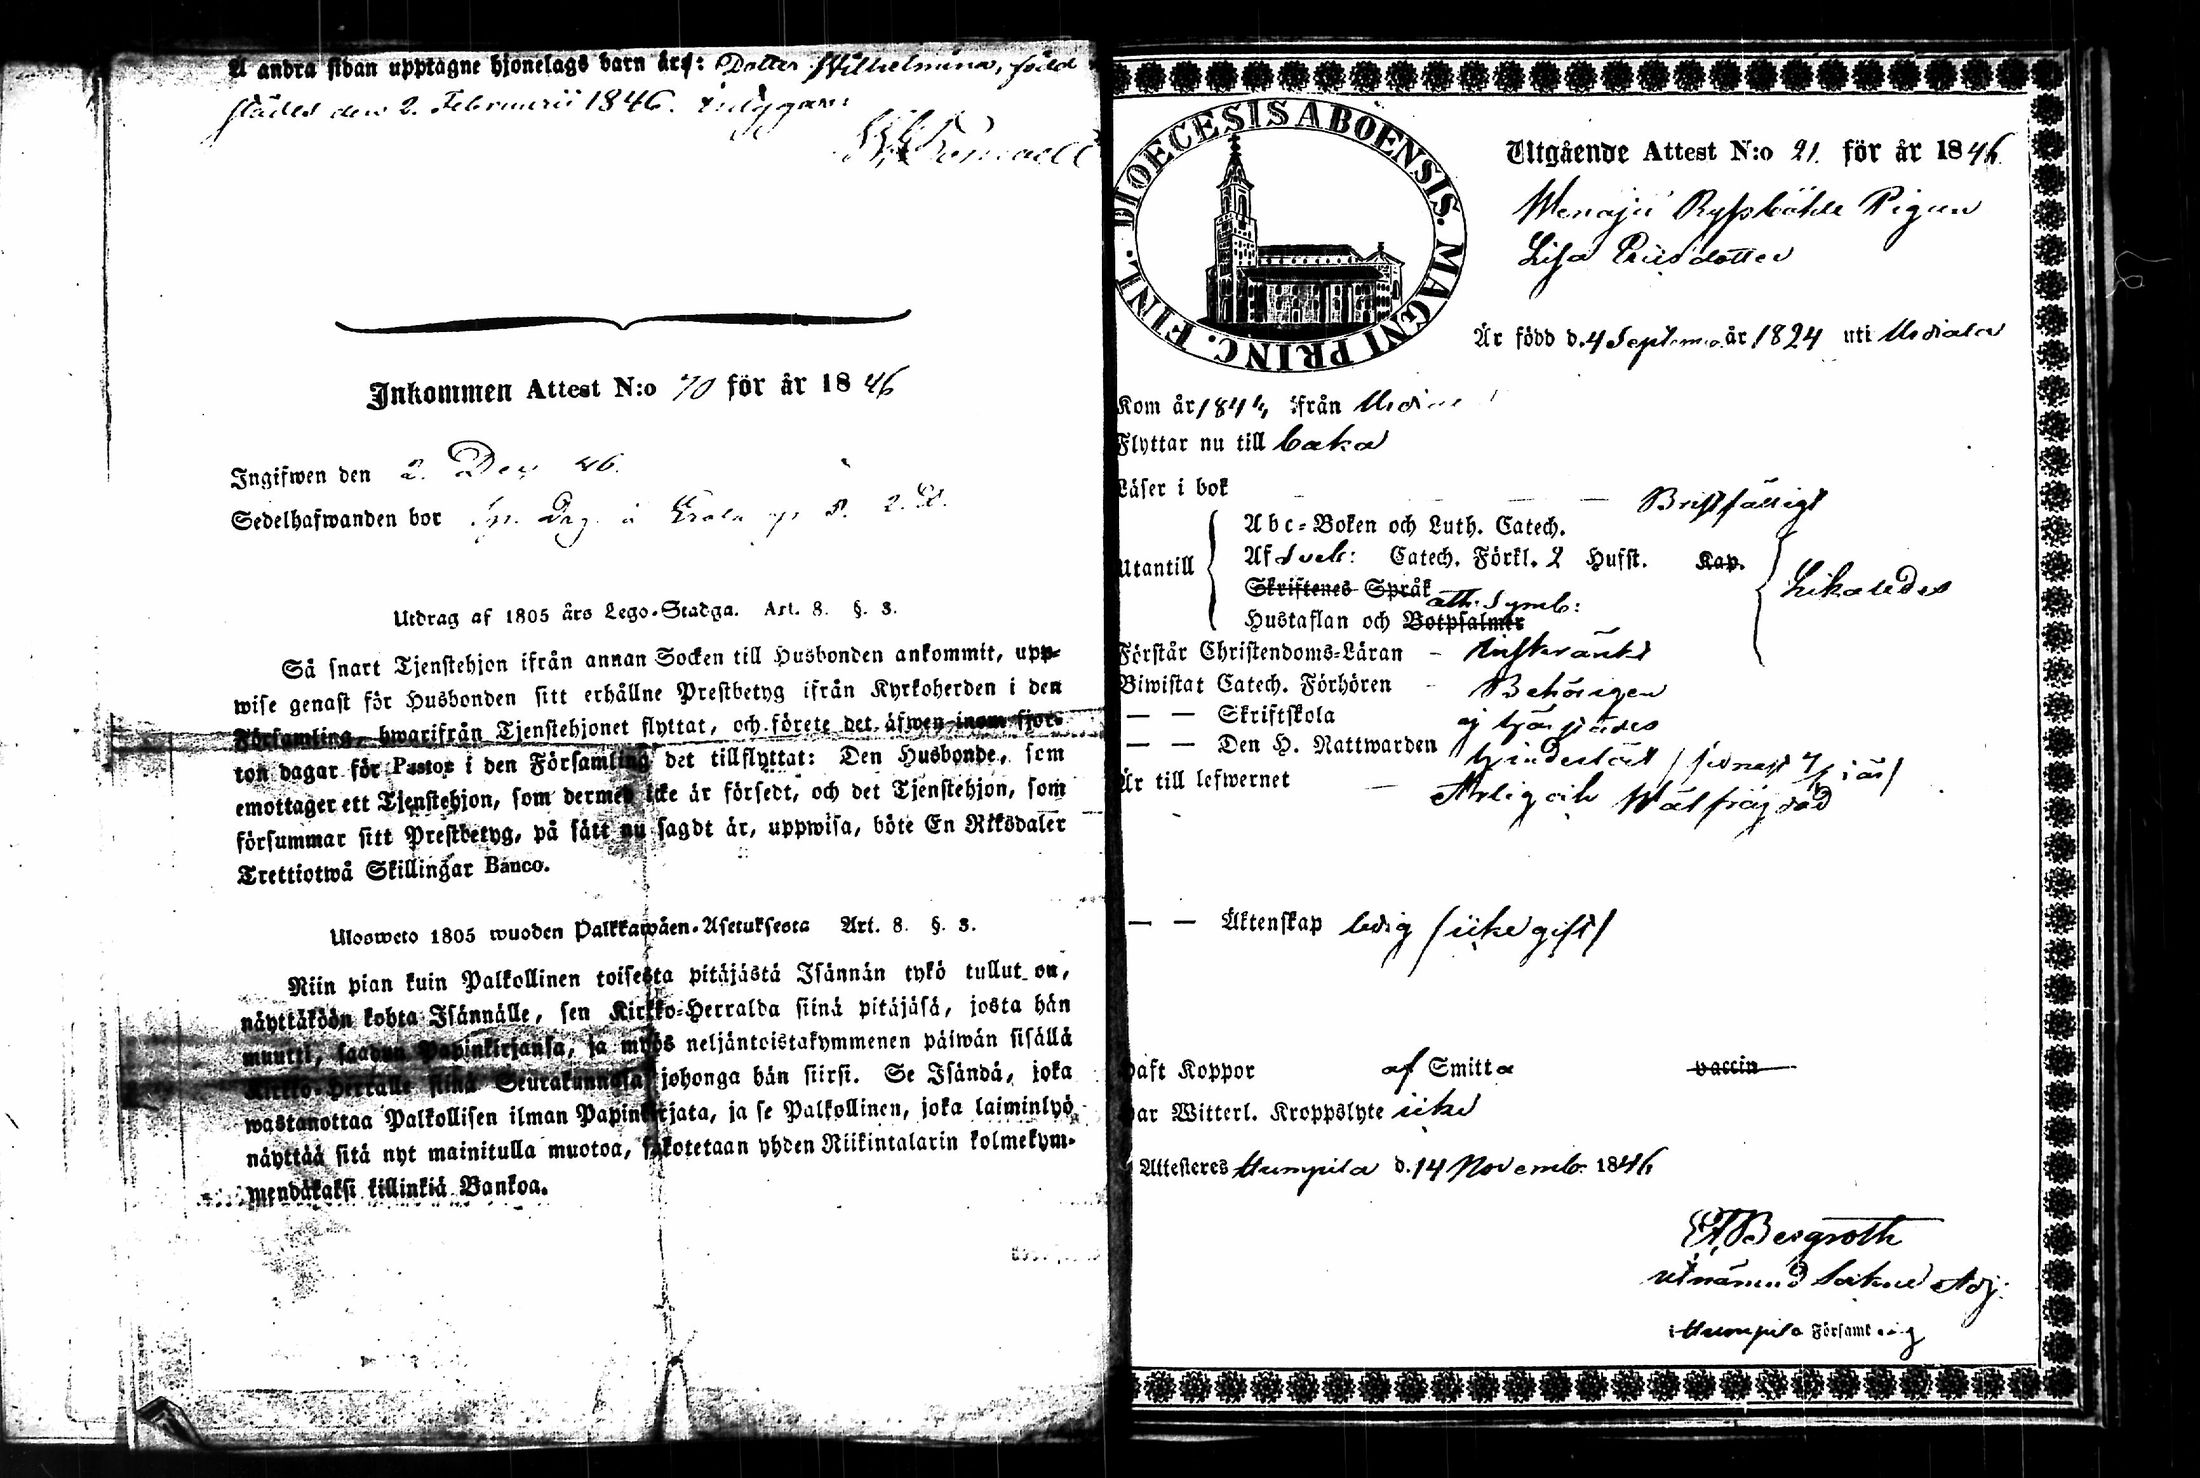 å andra sidan upptagne hjonelags barn är: Dotter Wilhelmina, född
städes den 2. Februarii 1846. intygar:
Inkommen Attest N:o 70 för år 1846
Ingifwen den 2. Dec 46.
Sedelhafwanden bor
Utdrag af 1805 års Lego-Stadga. Art. 8. §. 3.
Så snart Tjenstehjon ifrån annan Socken till Husbonden ankommit, upp-
wise genast för Husbonden sitt erhållne Prestbetyg ifrån Kyrkoherden i den
Församling, hwarifrån Tjenstehjonet flyttat, och förete det äfwen inom fjor-
ton dagar för Pastor i den Församling det tillflyttat: Den Husbonde, som
emottager ett Tjenstehjon, som dermed icke är försedt, och det Tjenstehjon, som
försummar sitt Prestbetyg, på sätt nu sagdt är, uppwisa, böte En Riksdaler
Trettiotwå Skillingar Banco.
Ulosweto 1805 wuoden Palkkawäen-Asetuksesta Art. 8. §. 3.
Niin pian kuin Palkollinen toisesta pitäjästä Isännän tykö tullut on,
näyttäköön kohta Isännälle, sen Kirkko-Herralda siinä pitäjäsä, josta hän
muutti, saadun Papinkirjansa, ja myös neljäntoistakymmenen päiwän sisällä
Kirkko-Herralle siinä Seurakunnasa johonga hän siirsi. Se Isändä, joka
wastanottaa Palkollisen ilman Papinkirjata, ja se Palkollinen, joka laiminlyö
näyttää sitä nyt mainitulla muotoa, sakotetaan yhden Riikintalarin kolmekym-
mendäkaksi killinkiä Bankoa.
DIOECESIS ABOENSIS. MAGNI PRINC. FINL.
Utgående Attest N:o 21. för år 1846
Pigan
Lisa Eriksdotter
Är född d. 4 Septemb. år 1824 uti Urdiala
Kom år 184 ifrån
Flyttar nu till
Läser i bok — — — Bristfälligt
Utantill
Abc-Boken och Luth. Catech.
Af Sveb: Catech. Förkl. 2 Hufst. Kap.
Skriftenes Språk
ath. Symb:
Hustaflan och Botpsalmer
Likaledes
Förstår Christendoms-Läran – Inskränkt
Biwistat Catech. Förhören – Behörigen
— — Skriftskola ej
— — Den H. Nattwarden
Är till lefwernet — Ärlig och Wälfräjdad
— — Äktenskap ledig (icke gift)
Haft Koppor af Smitta vaccin
Har Witterl. Kroppslyte icke
Attesteres Humpila d. 14 Novemb. 1846
Bergroth
utnämnd Sockne Adj:
i Humpila Församling